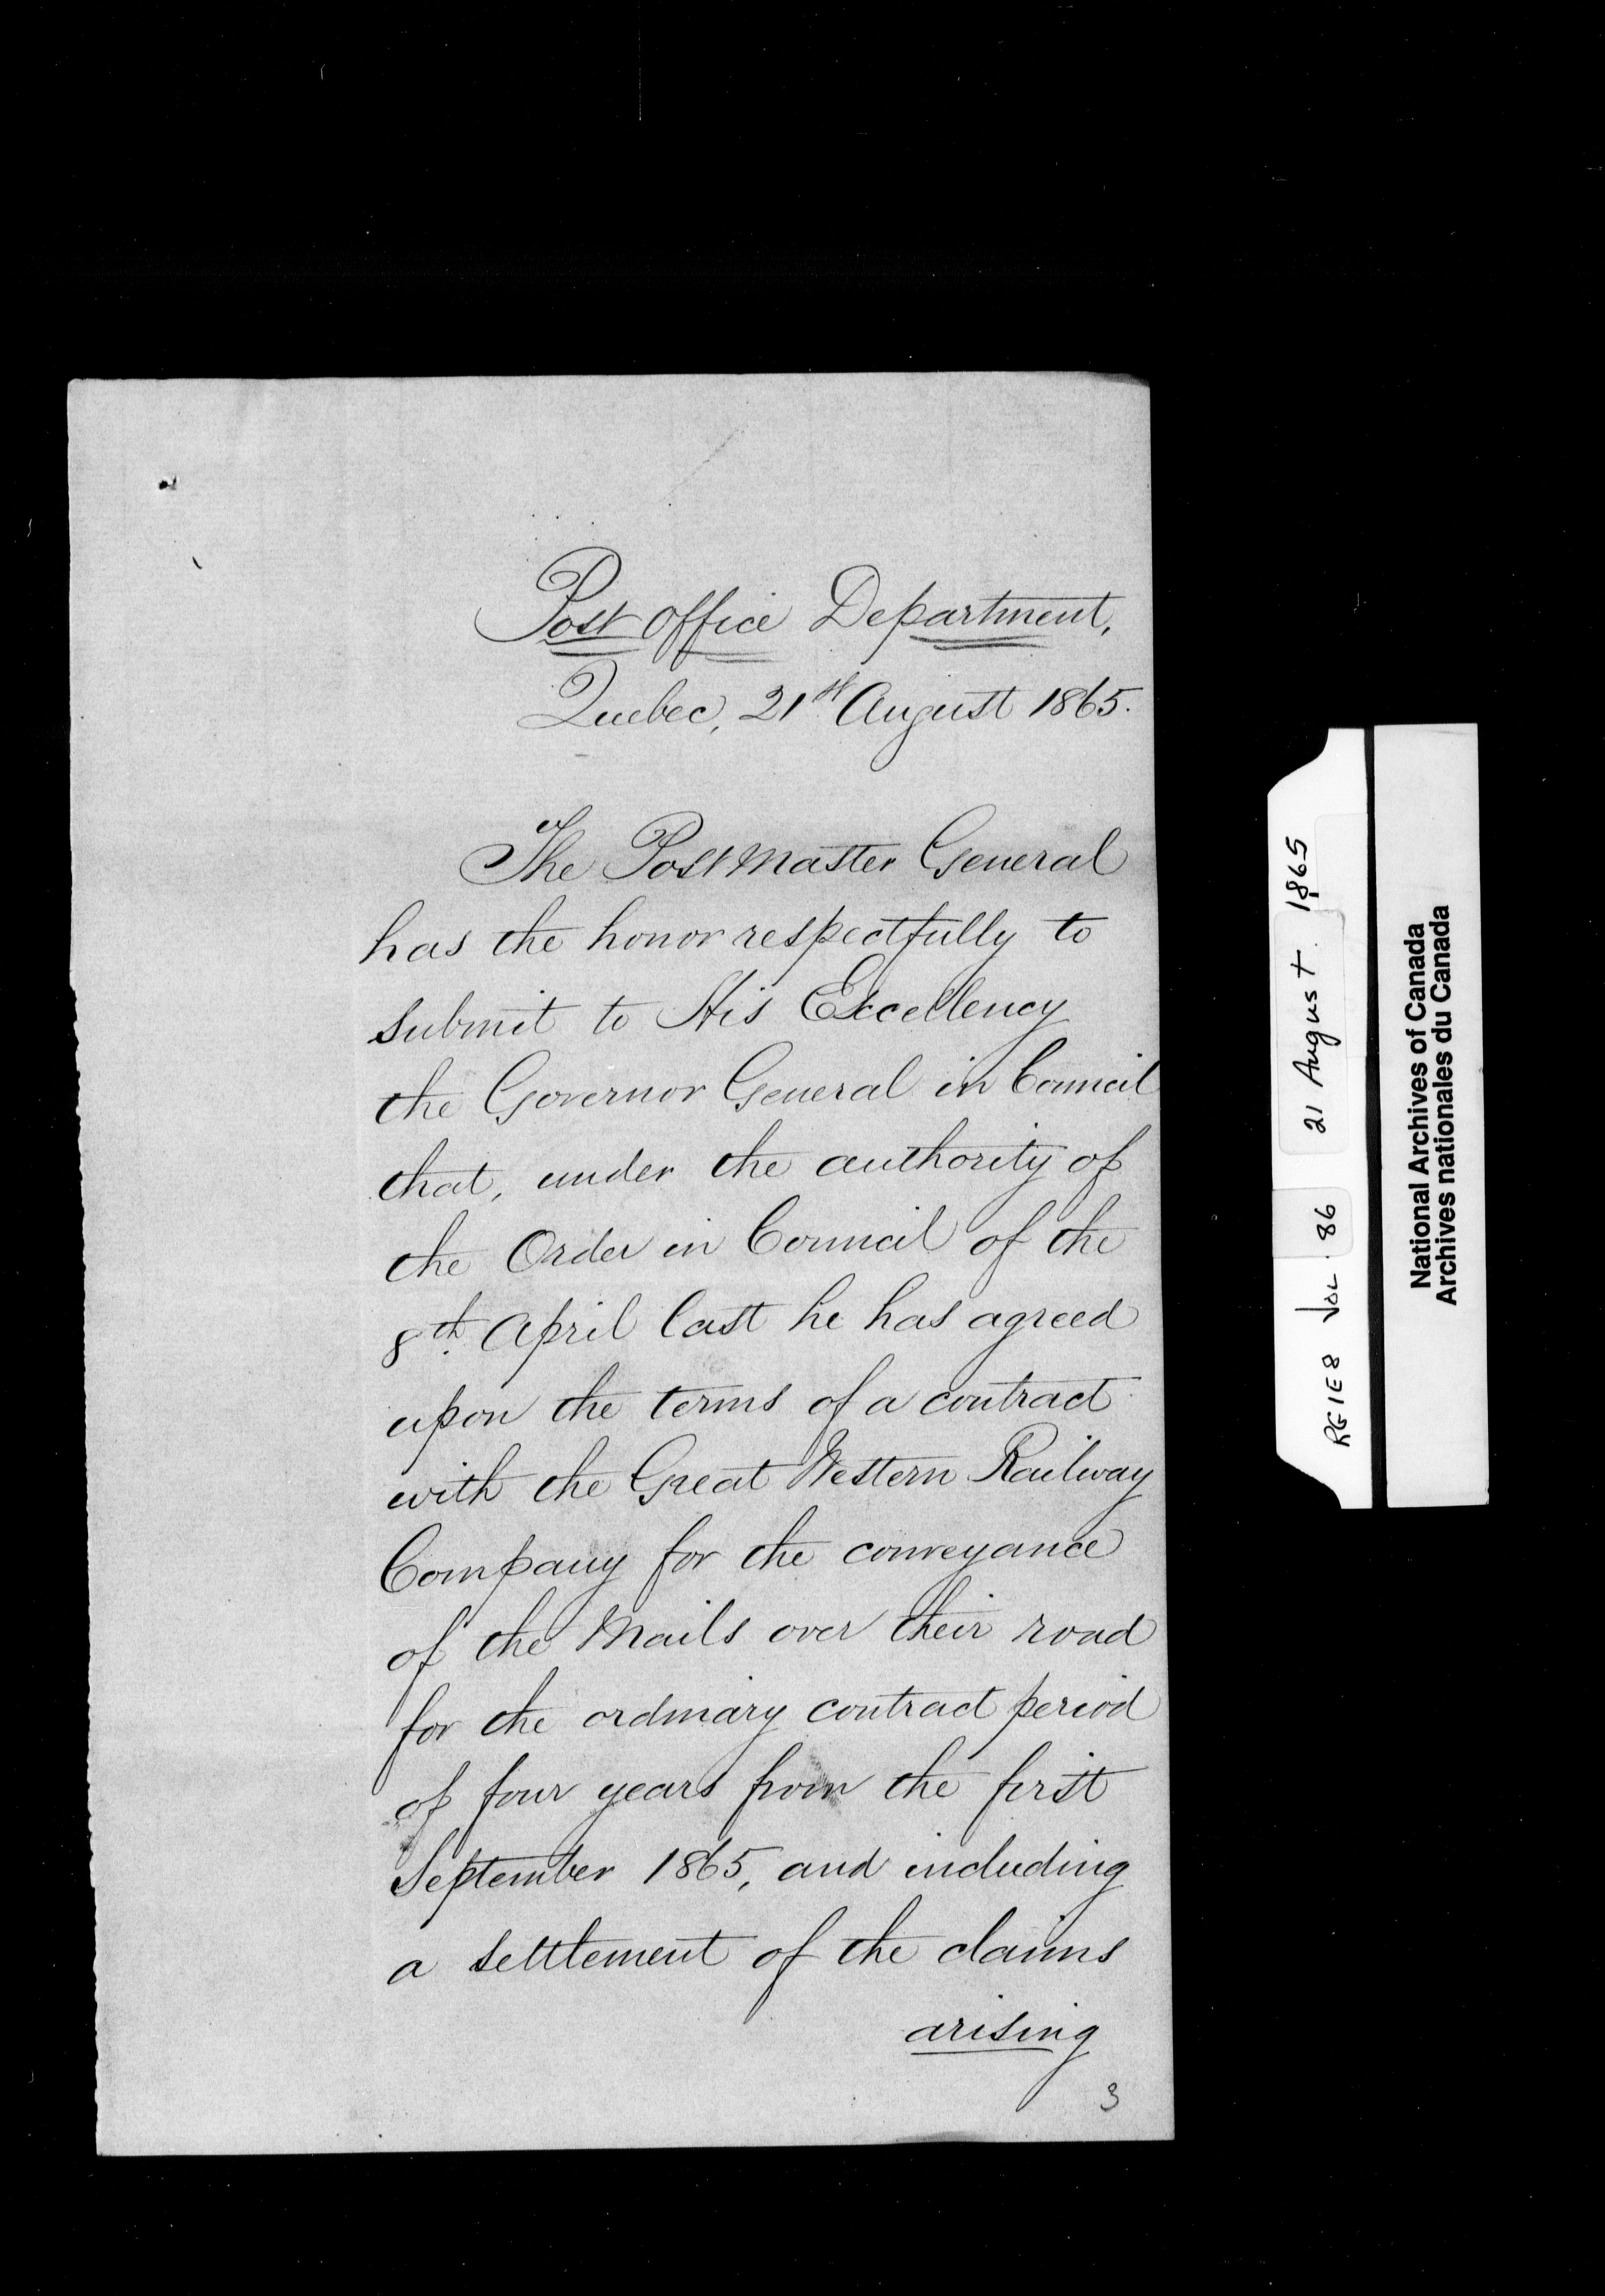 Post Office Department,
Quebec, 21st August 1865.
The PostMaster General
has the honor respectfully to
submit to His Excellency
the Governor General in Council
that, under the authority of
the Order in Council of the
8th. April last he has agreed
upon the terms of a contract
with the Great Western Railway
Company for the conveyance
of the Mails over their road
for the ordinary contract period
of four years from the first
September 1865, and including
a settlement of the claims
arising
3
RG1E8 Vol. 86 21 August. 1865
National Archives of Canada
Archives nationales du Canada